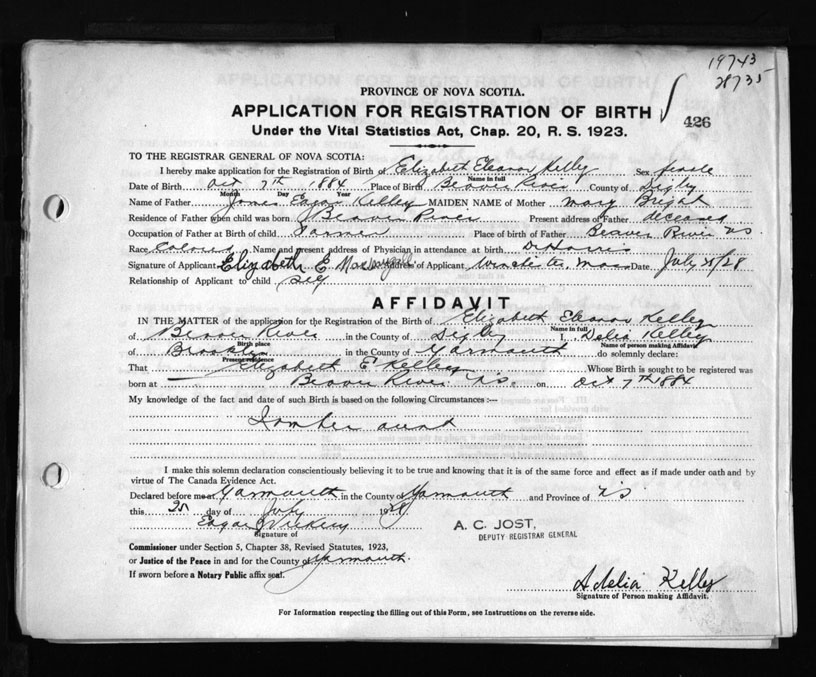 19743
28735
426
PROVINCE OF NOVA SCOTIA.
APPLICATION FOR REGISTRATION OF BIRTH
Under the Vital Statistics Act, Chap. 20, R. S. 1923.
TO THE REGISTRAR GENERAL OF NOVA SCOTIA:
I hereby make application for the Registration of Birth of Elizabeth Eleanor Kelley Sex female
Name in full
Date of Birth Oct 7th 1884 Place of Birth Beaver River County of Digby
Month Day Year
Name of Father James Edgar Kelley MAIDEN NAME of Mother Mary Bright
Residence of Father when child was born Beaver River Present address of Father deceased
Occupation of Father at Birth of child Farmer Place of birth of Father Beaver River NS
Race Colored Name and present address of Physician in attendance at birth Dr Harris
Signature of Applicant Elizabeth E Address of Applicant Winchester, Mass Date July 25/28
Relationship of Applicant to child self
AFFIDAVIT
IN THE MATTER of the application for the Registration of the Birth of Elizabeth Eleanor Kelley
Name in full
of Beaver River in the County of Digby I, Delia Kelley
Birth place Name of person making Affidavit
of Brooklyn in the County of Yarmouth do solemnly declare:
Present residence
That Elizabeth E Kelley Whose Birth is sought to be registered was
born at Beaver River NS. on Oct 7th 1884
My knowledge of the fact and date of such Birth is based on the following Circumstances :—
I am her aunt
I make this solemn declaration conscientiously believing it to be true and knowing that it is of the same force and effect as if made under oath and by
virtue of The Canada Evidence Act.
Declared before me at Yarmouth in the County of Yarmouth and Province of NS
this 25 day of July 1928
Edgar Vickery
Signature of
A. C. JOST,
DEPUTY REGISTRAR GENERAL
Commissioner under Section 5, Chapter 38, Revised Statutes, 1923,
or Justice of the Peace in and for the County of Yarmouth.
If sworn before a Notary Public affix seal.
Adelia Kelley
Signature of Person making Affidavit.
For Information respecting the filling out of this Form, see Instructions on the reverse side.